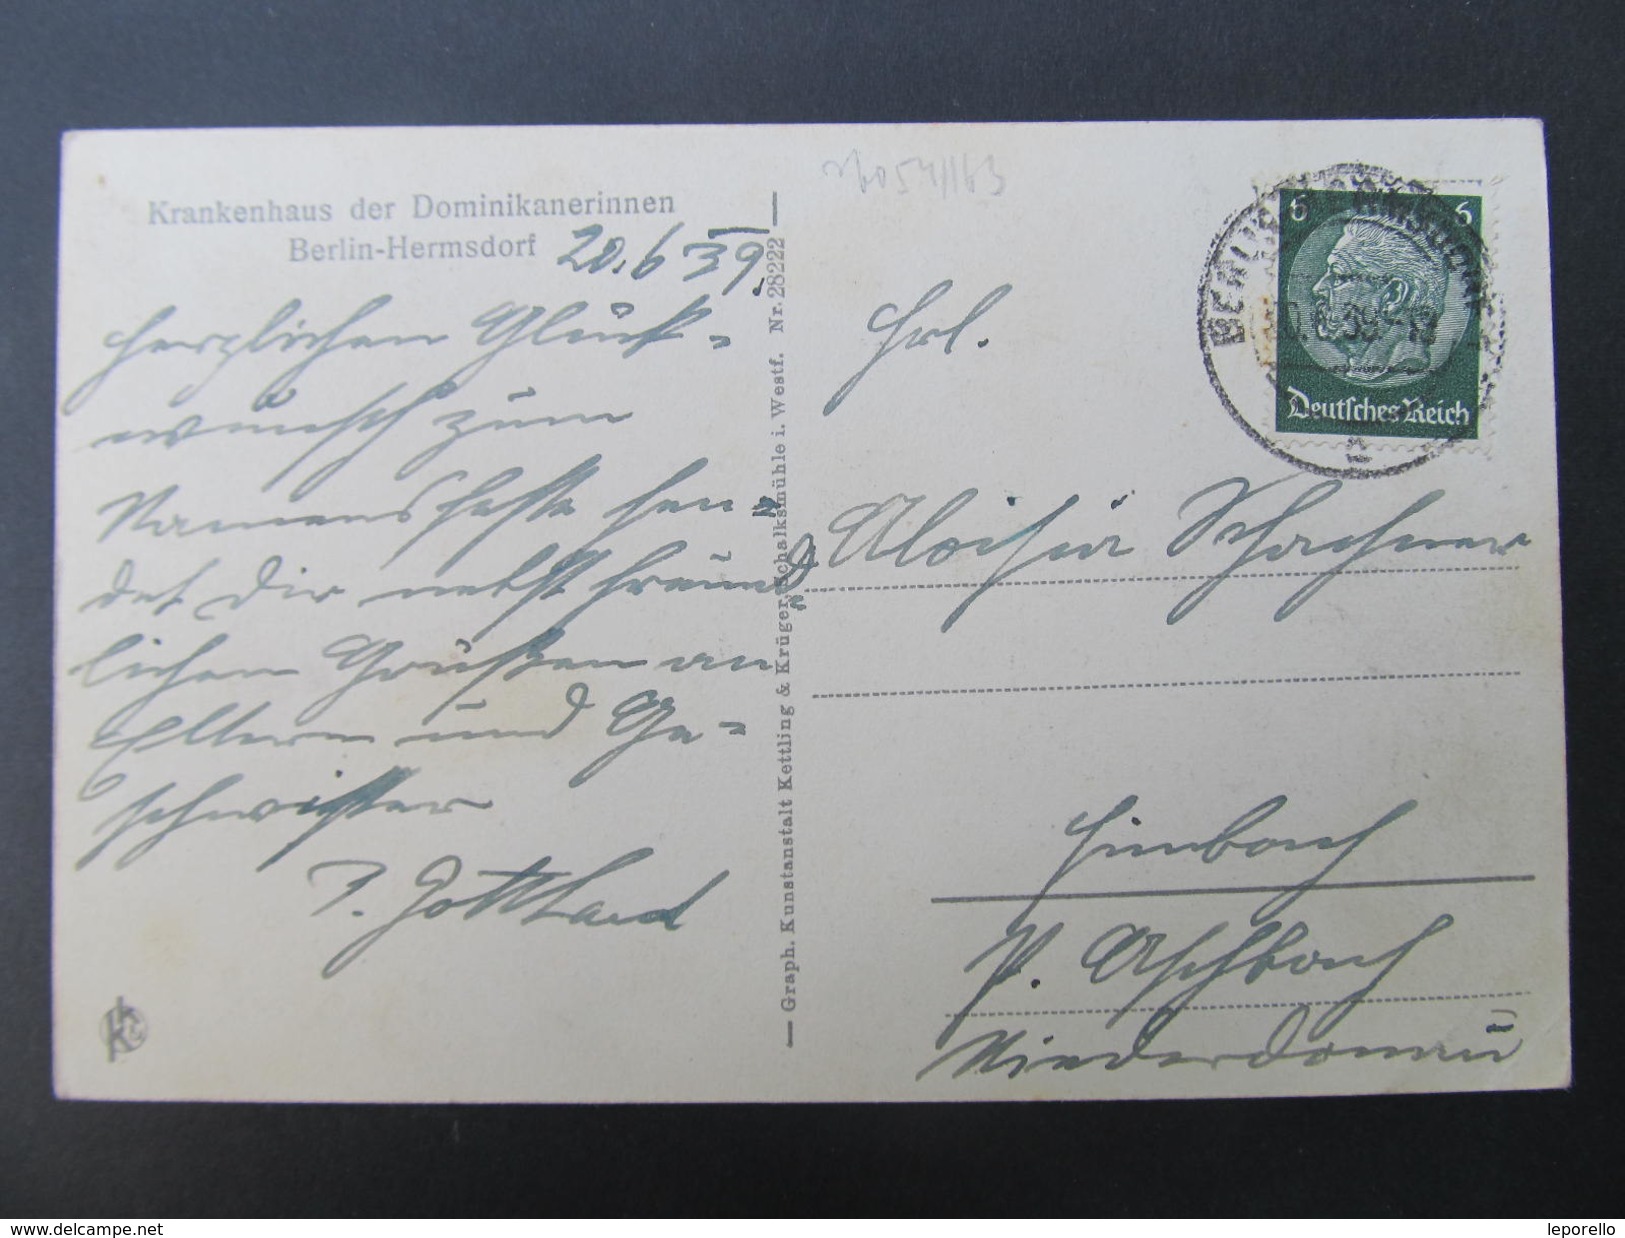 Krankenhaus der Dominikanerinnen
Berlin-Hermsdorf
20.6 39.
Herzlichen Glück-
wunsch zum
Namensfeste sen-
det Dir nebst freund-
lichen Grüßen an
Eltern und Ge-
schwister
P. Gotthard
Graph. Kunstanstalt Kettling & Krüger, Schalksmühle i. Westf. Nr. 28222
6 6
Deutsches Reich
Frl.
Aloisia Schachner
Himbach
P. Aschbach
Niederdonau
www.delcampe.net
leporello